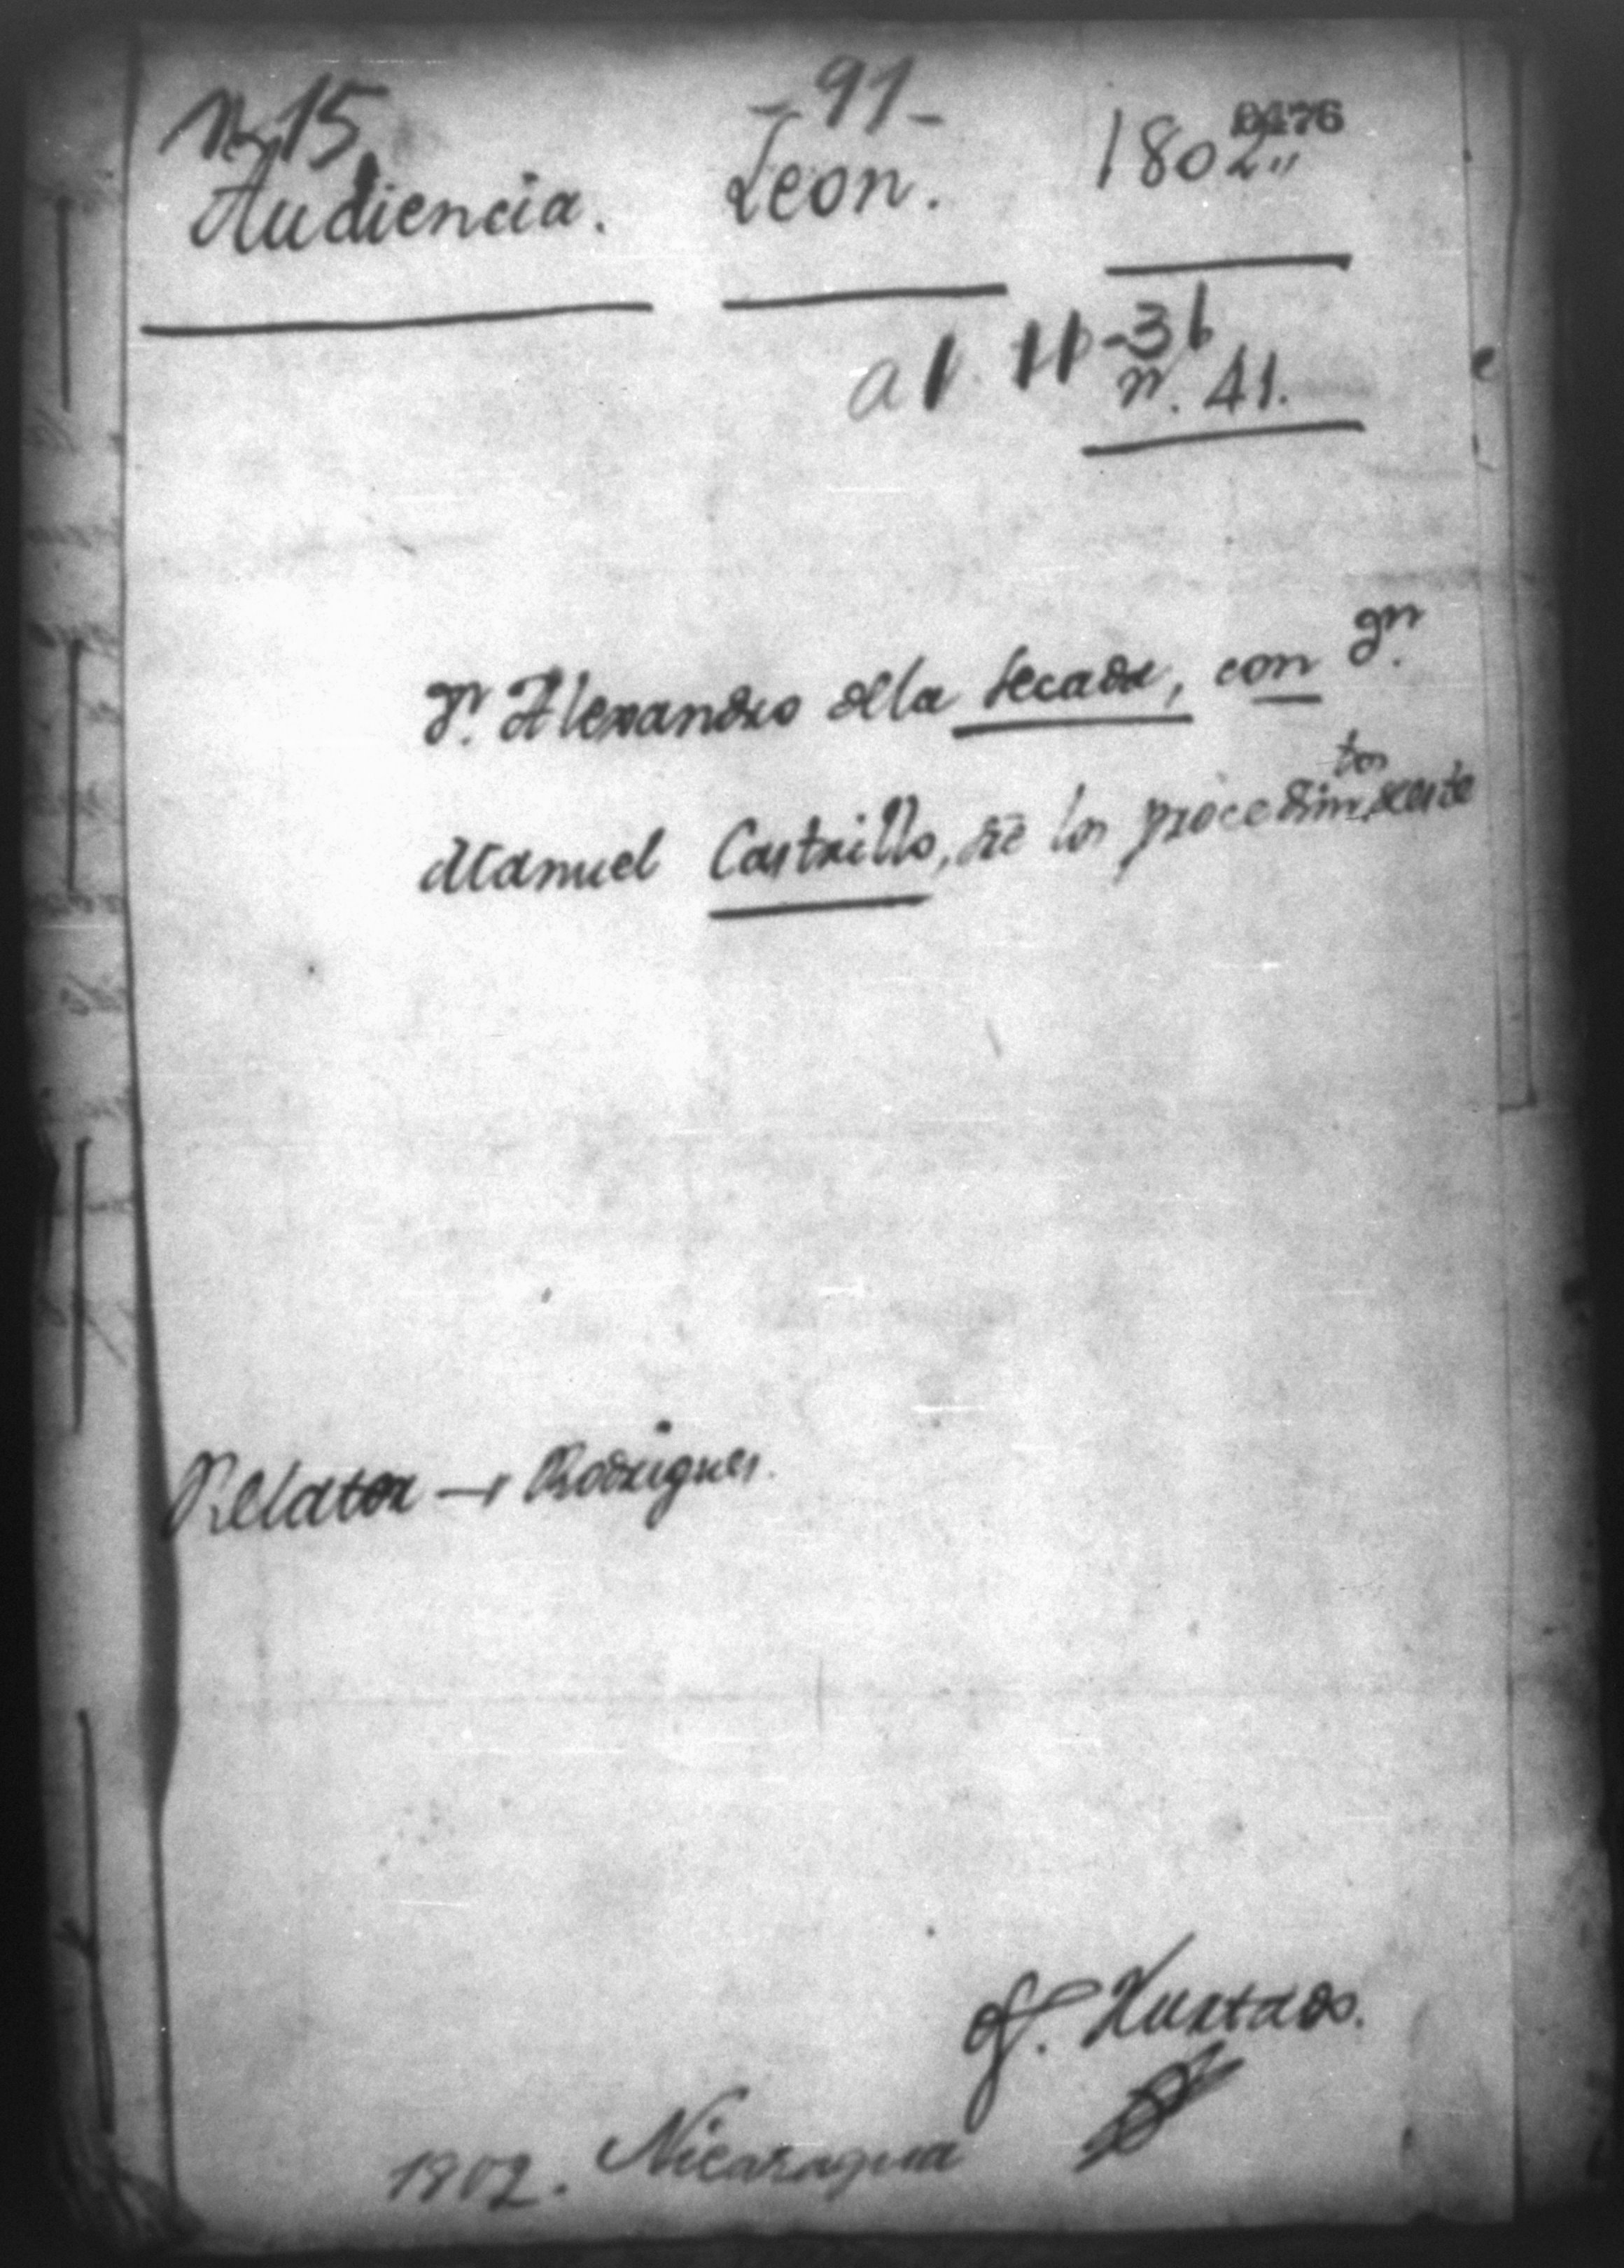 N 15
-91-
Audiencia. Leon. 1802,,
a1. 11-36
n. 41.
Dn. Alexandro dela Secada, con Dn.
Manuel Castrillo, sre los procedimtos. deeste
Relator — Rodriguez.
Of. Hurtado.
1802. Nicaragua